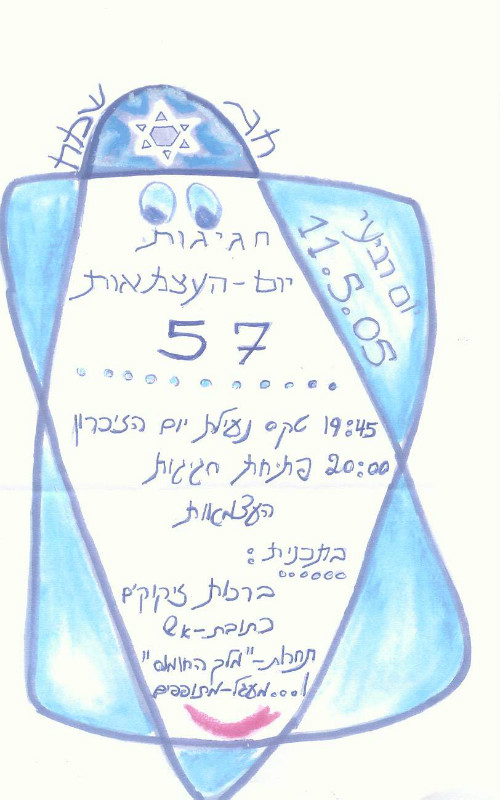 חג שמח
יום רביעי
11.5.05
חגיגות
יום-העצמאות
57
19:45 טקס נעילת יום הזיכרון
20:00 פתיחת חגיגות
העצמאות
בתכנית:
ברכות זיקוקים
כתובת-אש
תחרות-"מלך החומוס"
ו...מעגל-מתופפים